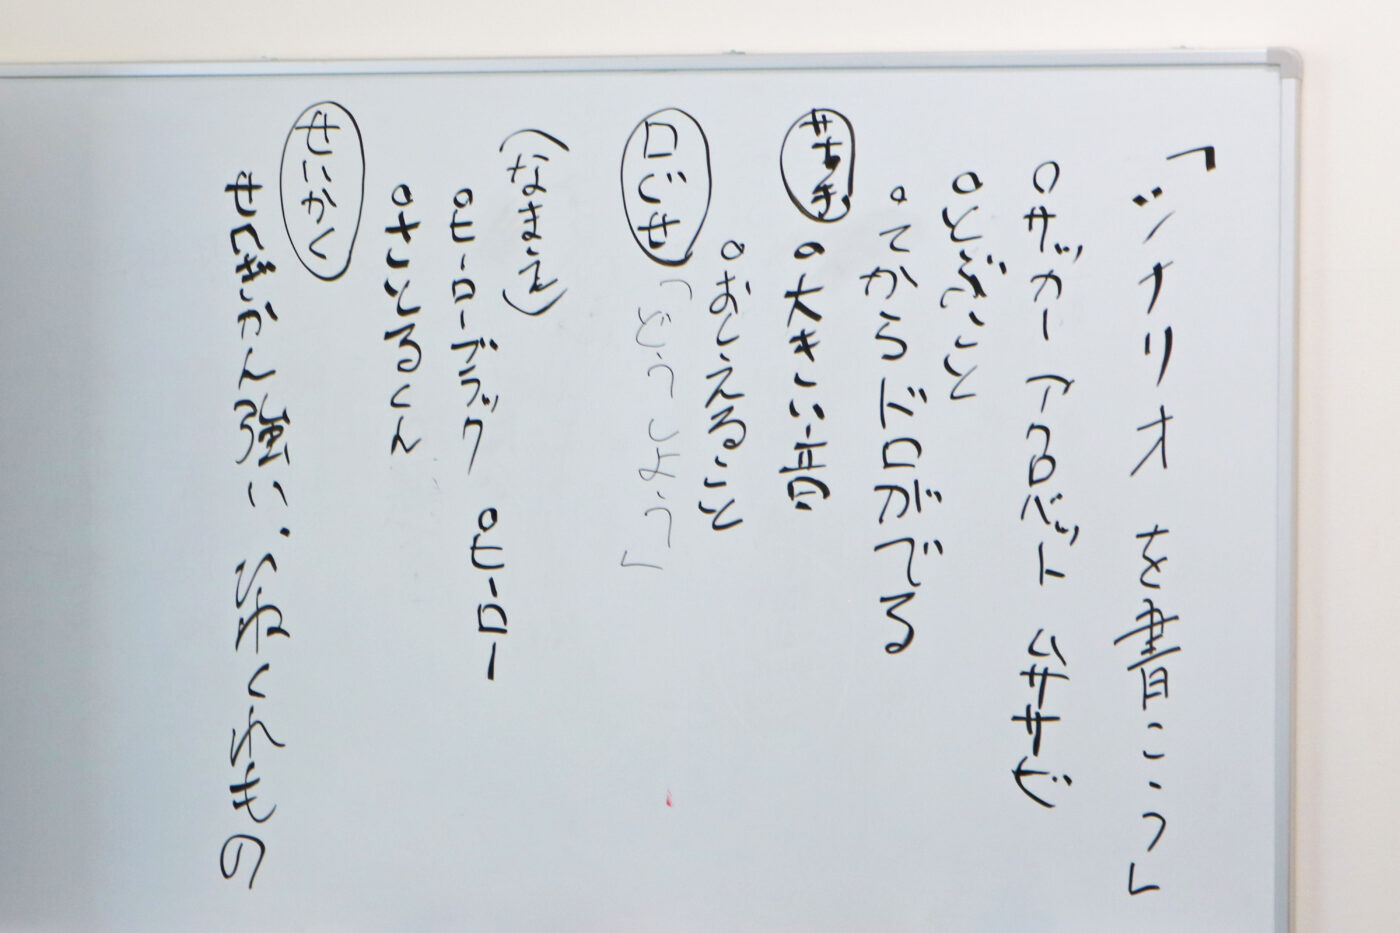 「シナリオを書こう」
○サッカー アルロバット ムササビ
○とぶこと
○てからドロがでる
苦手 ○大きい音
○おしえること
口ぐせ 「どうしよう」
(なまえ)
○ヒーローブラック ○ヒーロー
○さとるくん
せいかく
せきにかん強い、ひねくれもの